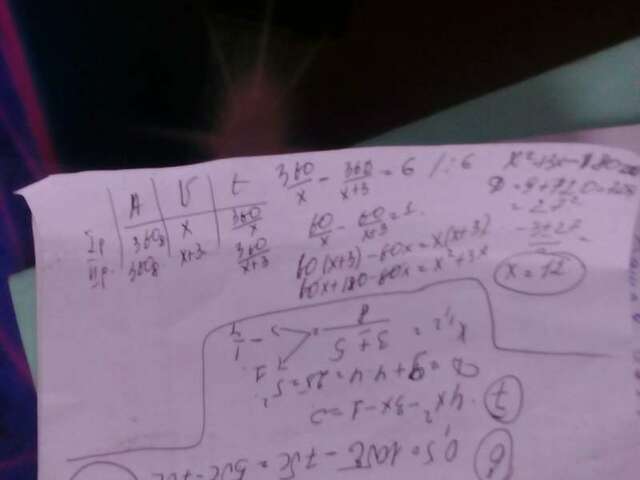 A | V | t
1р | 360g | x | 360/x
2р. | 360g | x+3 | 360/x+3
360/x - 360/x+3 = 6 /:6
60/x - 60/x+3 = 1.
60(x+3) - 60x = x(x+3)
60x+180-60x = x²+3x
x²+3x-180=0
D = 9+720=729
= 27²
-3±27/2 =
x = 12
6
7 4x²-3x-1=0
D = 9+4·4=25=5²
x₁,₂ = 3±5/8 = 1. ; -1/4